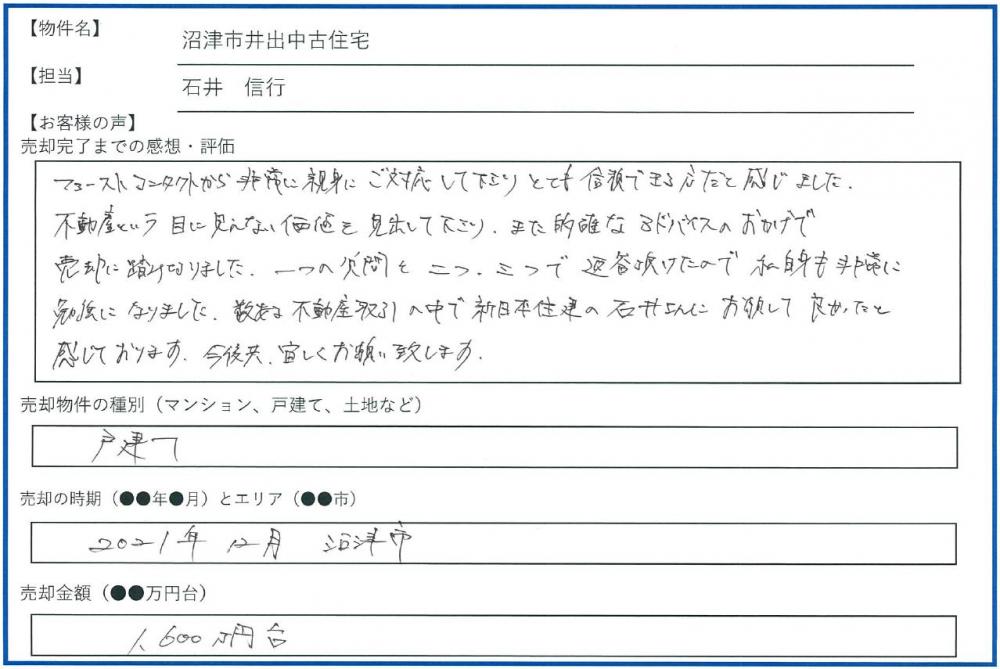 【物件名】
沼津市井出中古住宅
【担当】
石井 信行
【お客様の声】
売却完了までの感想・評価
ファーストコンタクトから非常に親身にご対応して下さりとても信頼できる方だと感じました。
不動産という目に見えない価値を見出して下さり、また的確なアドバイスのおかげで
売却に踏み切りました。一つの質問を二つ、三つで返答頂けたので私自身も非常に
勉強になりました。数ある不動産取引の中で新日本住建の石井さんにお願いして良かったと
感じております。今後共、宜しくお願い致します。
売却物件の種別(マンション、戸建て、土地など)
戸建て
売却の時期(●●年●月)とエリア(●●市)
2021年12月 沼津市
売却金額(●●万円台)
1,600万円台